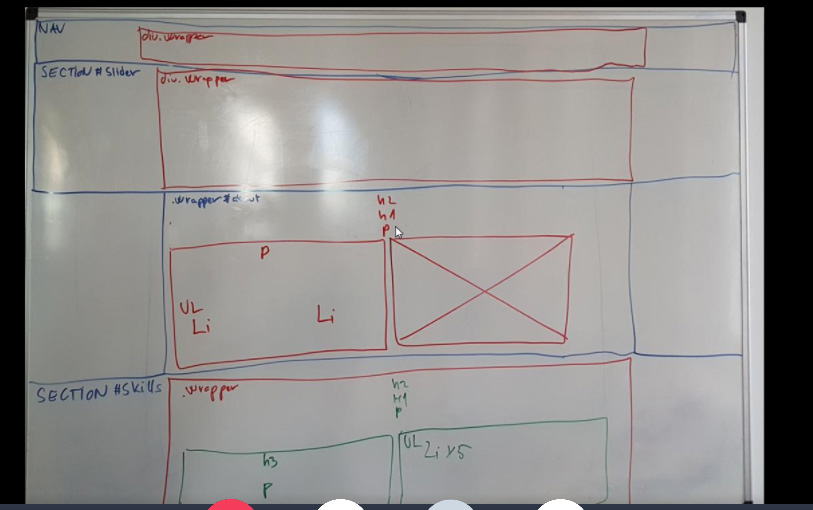 NAV
div.wrapper
SECTION #Slider
div.wrapper
.wrapper #about
h2
h1
P
P
UL
Li
Li
SECTION #Skills
.wrapper
h2
H1
P
h3
P
UL
Li x5